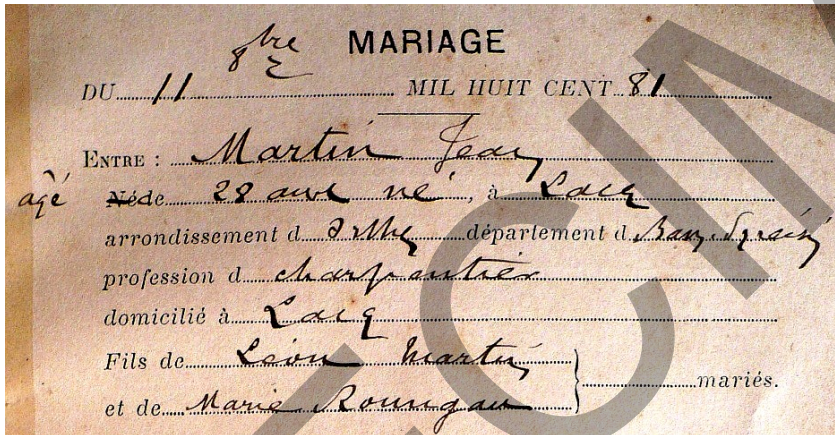 MARIAGE
DU 11 8bre MIL HUIT CENT 81
ENTRE : Martin Jean
âgé Née de 28 ans né, à Lacq
arrondissement d Orthez département d Bas. Pyrénées
profession d charpentier
domicilié à Lacq
Fils de Léon Martin
et de Marie mariés.